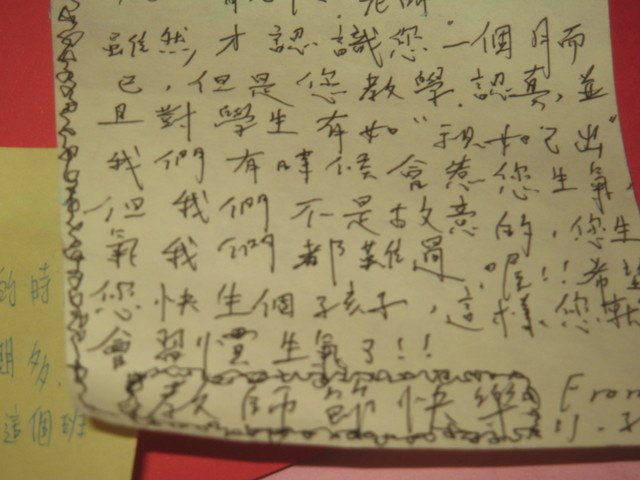 老師
雖然,才認識您一個月而
已,但是您教學認真,並
且對學生有如"視如己出"
我們有時候會惹您生氣,
但我們不是故意的,您生
氣我們都難過喔!!希望
您快生個孩子,這樣您就
會習慣生氣了!!!
教師節快樂
From
的時
期多,
這個班